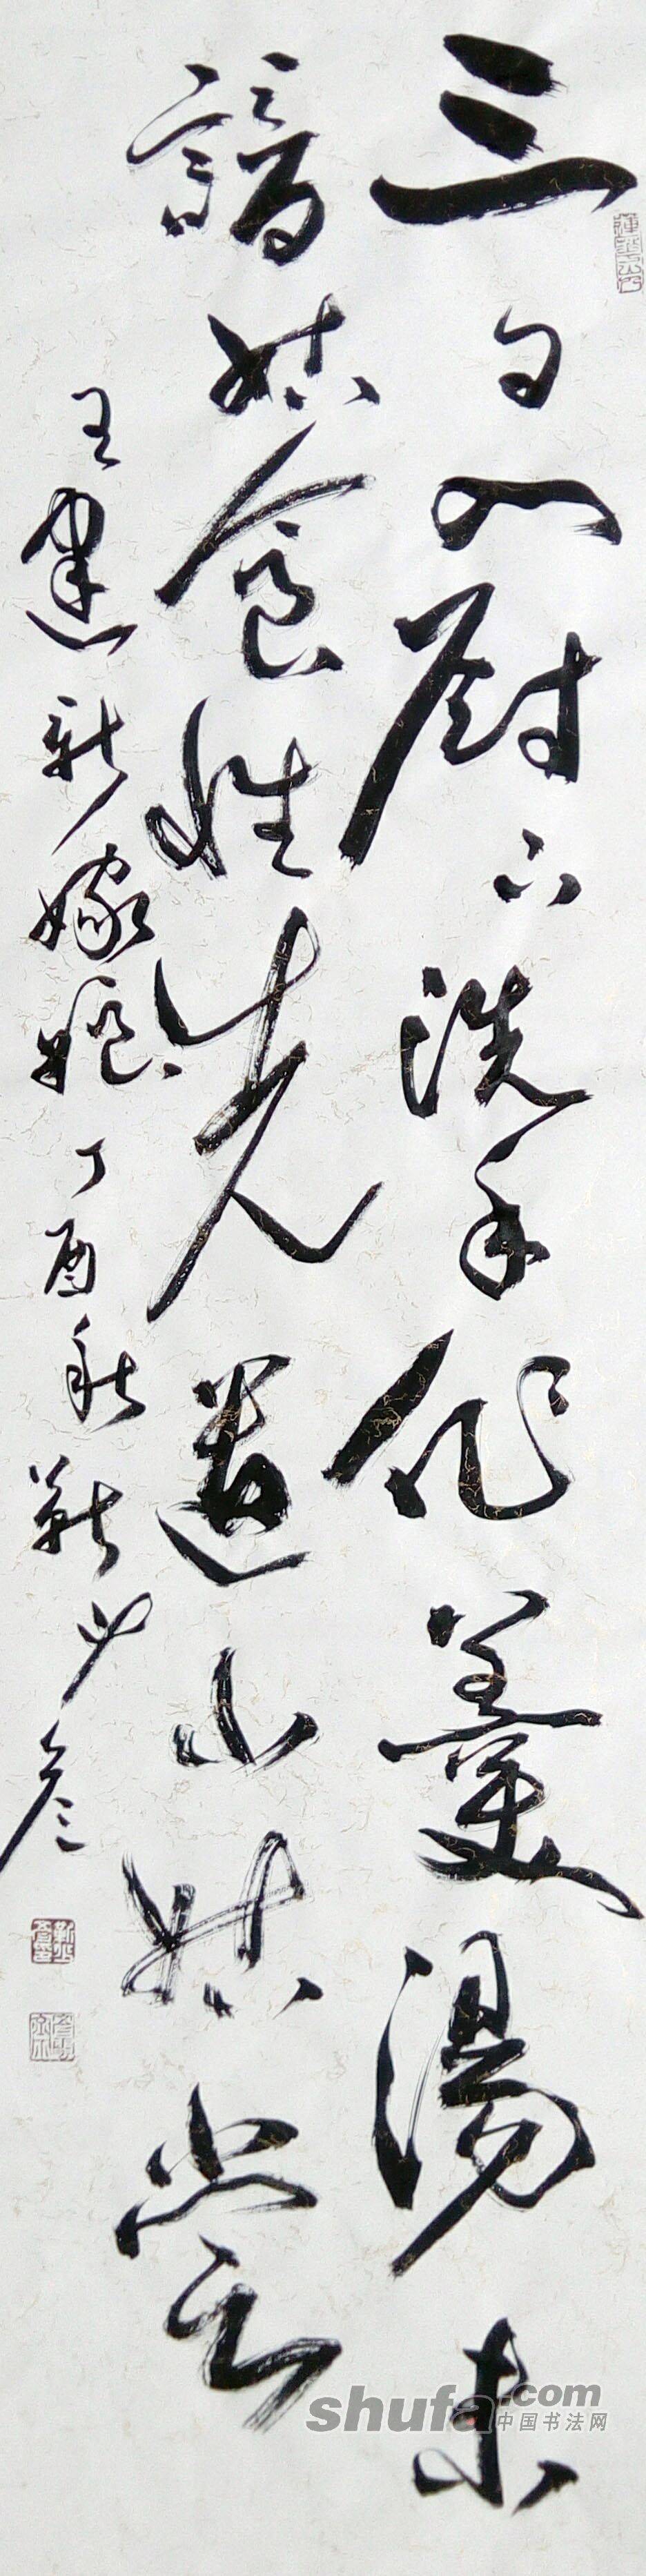 三日入厨下洗手作羹湯未
諳姑食性先遣小姑尝
王建新嫁娘丁酉秋靳
shufa.com
中国书法网